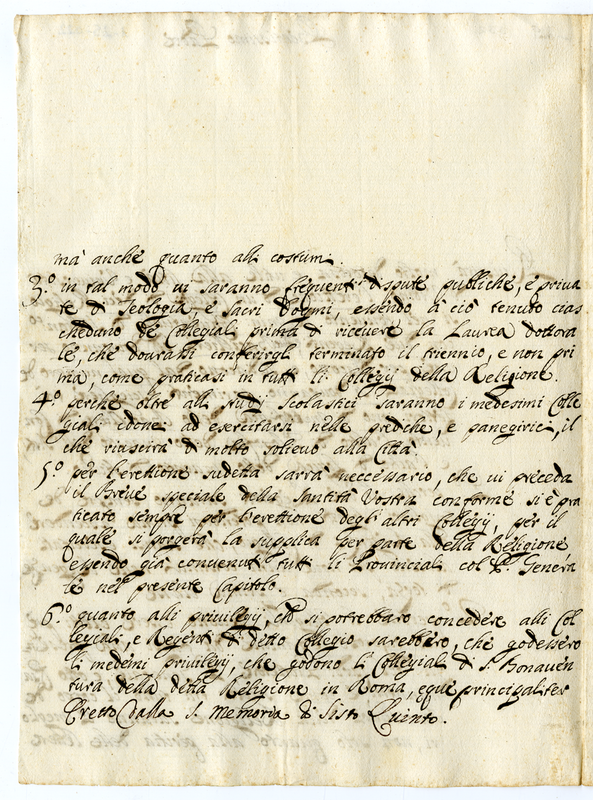 mà anche quanto alli costumi.
3.º in tal modo vi saranno frequenti dispute publiche, e priva
te di Teologia, e Sacri Dogmi, essendo à ciò tenuto cias
cheduno de Collegiali prima di ricevere la Laurea dottora
le, che dourassi conferirgli terminato il triennio, e non pri
ma, come praticasi in tutti li Collegij della Religione.
4.º perche oltre alli studij Scolastici saranno i medesimi Colle
giali idonei ad esercitarsi nelle prediche, e panegirici, il
che riuscirà di molto solieuo alla Città.
5.º per l'erettione sudetta sarrà neccessario, che vi preceda
il Breve speciale della Santità Vostra conforme si è pra
ticato sempre per l'erettione degl'altri Collegij, per il
quale si porgerà la supplica per parte della Religione
essendo già convenuti tutti li Provinciali col P. Genera
le nel presente Capitolo.
6.º quanto alli privilegij, che si potrebbaro concedere alli Col
legiali, e Regenti di detto Collegio sarebbero, che godessero
li medemi privilegij, che godono li Collegiali di S. Bonaven
tura della detta Religione in Roma, eque principaliter
Eretto dalla S. Memoria di Sisto Quinto.